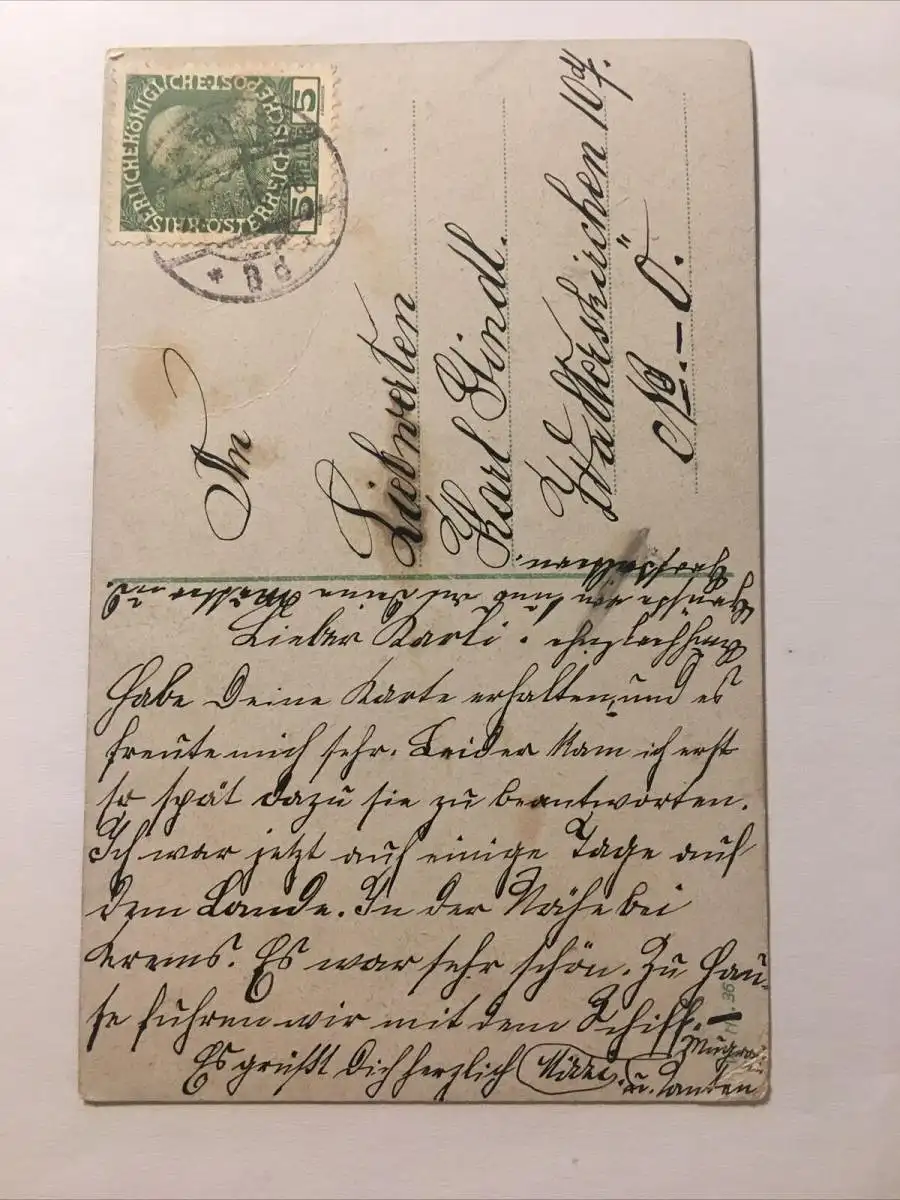 KAISERLICHE KÖNIGLICHE ÖSTERREICHISCHE POST
5 HELLER 5
An
Liebwerten
Karl Gindl.
Walterskirchen 10
N.-Ö.
Lieber Karli.
Habe Deine Karte erhalten, und es
freute mich sehr. Leider kam ich erst
so spät dazu sie zu beantworten.
Ich war jetzt auf einige Tage auf
dem Lande. In der Nähe bei
Krems. Es war sehr schön. Zu Hau-
se fuhren wir mit dem Schiff.
Es grüßt Dich herzlich
u. Tanten